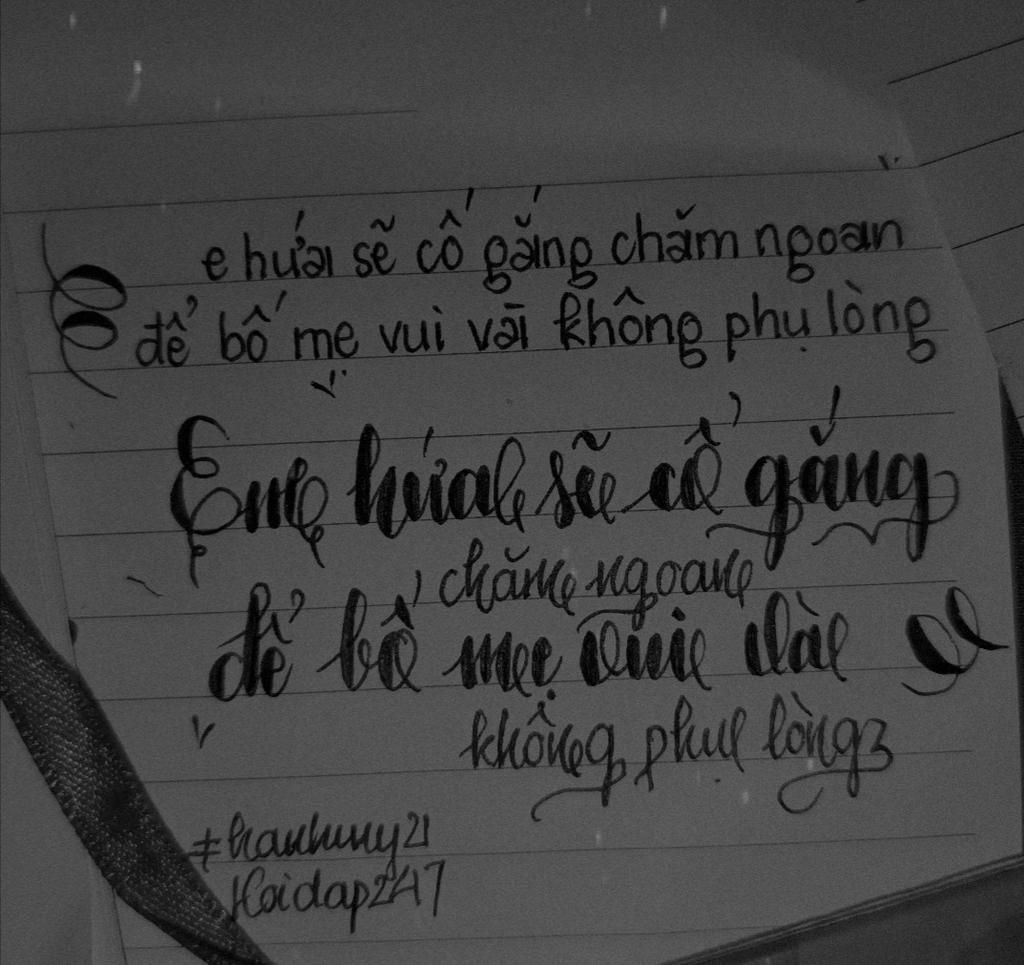 e hứai sẽ cố gắng chăm ngoan
để bố mẹ vui vài không phụ lòng
Em hứai sẽ cố gắng
chăm ngoan
để bố mẹ vui vài
không phụ lòng
Hoidap247